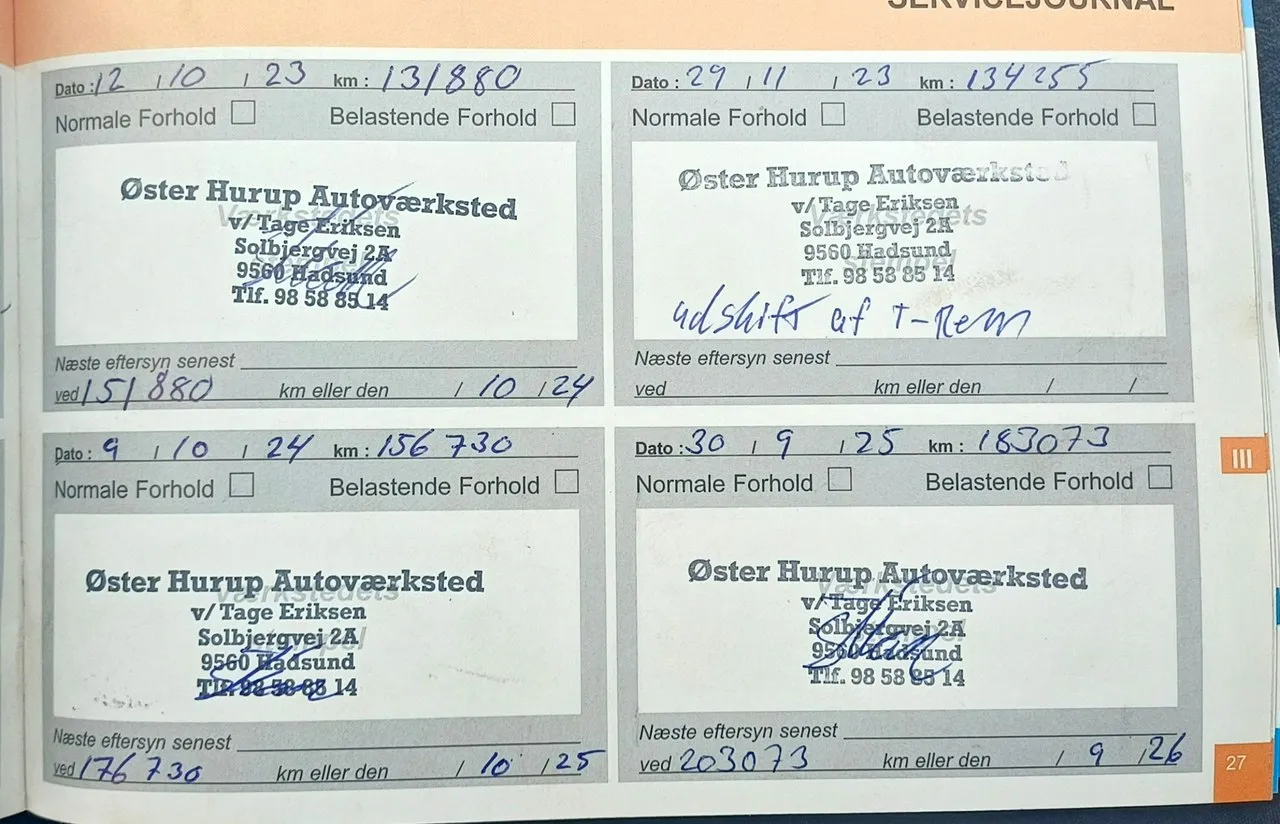 SERVICEJOURNAL
Dato : 12 / 10 / 23 km : 131880
Normale Forhold Belastende Forhold
Værkstedets
stempel
Øster Hurup Autoværksted
v/ Tage Eriksen
Solbjergvej 2A
9560 Hadsund
Tlf. 98 58 85 14
Næste eftersyn senest
ved 151880 km eller den / 10 / 24
Dato : 29 / 11 / 23 km : 134255
Normale Forhold Belastende Forhold
Værkstedets
stempel
Øster Hurup Autoværksted
v/ Tage Eriksen
Solbjergvej 2A
9560 Hadsund
Tlf. 98 58 85 14
udskift af T-Rem
Næste eftersyn senest
ved km eller den / /
Dato : 9 / 10 / 24 km : 156 730
Normale Forhold Belastende Forhold
Værkstedets
stempel
Øster Hurup Autoværksted
v/ Tage Eriksen
Solbjergvej 2A
9560 Hadsund
Tlf. 98 58 85 14
Næste eftersyn senest
ved 176 730 km eller den / 10 / 25
Dato : 30 / 9 / 25 km : 183073
Normale Forhold Belastende Forhold
Værkstedets
stempel
Øster Hurup Autoværksted
v/ Tage Eriksen
Solbjergvej 2A
9560 Hadsund
Tlf. 98 58 85 14
Næste eftersyn senest
ved 203073 km eller den / 9 / 26
III
27